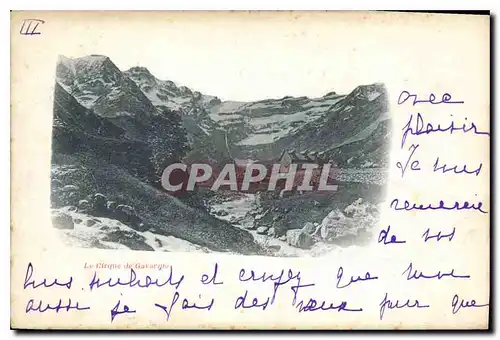 III
avec
plaisir
Je vous
remercie
de vos
CPARAMA
Le Cirque de Gavarnie
bons souhaits et croyez que nous
aussi je fais des voeux pour que